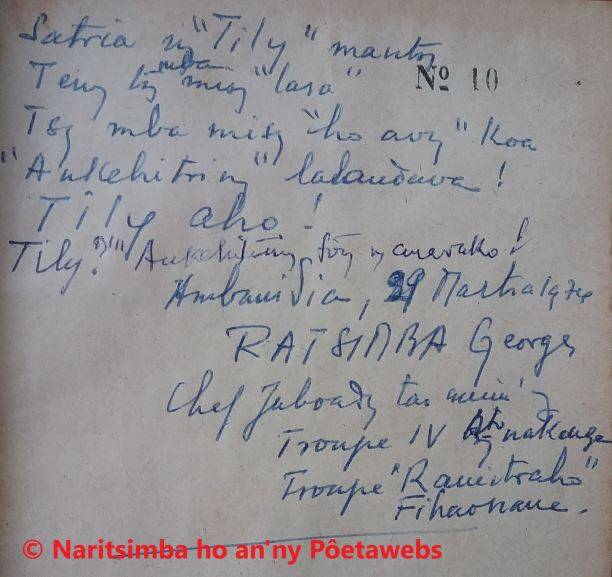 Satria ny "Tily" mantsy
Teny tsy mba misy "lasa"
No 10
Tsy mba misy "ho avy" koa
"Ankehitriny" lalandava!
Tily aho!
Tily? Ankehitriny foy ny anarako!
Ambanidia, 29 Martsa 1974
RATSIMBA Georges
Chef Jaboady
Troupe IV
Troupe "Ranitraho"
Fihaonana.
© Naritsimba ho an'ny Pôetawebs